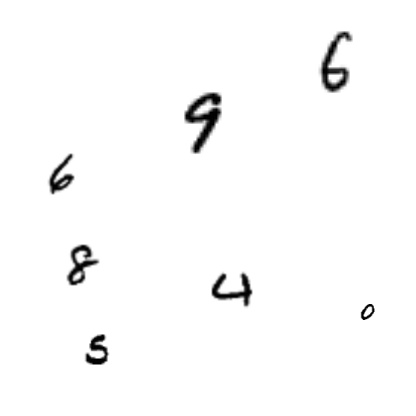 6
9
6
8
4
0
5